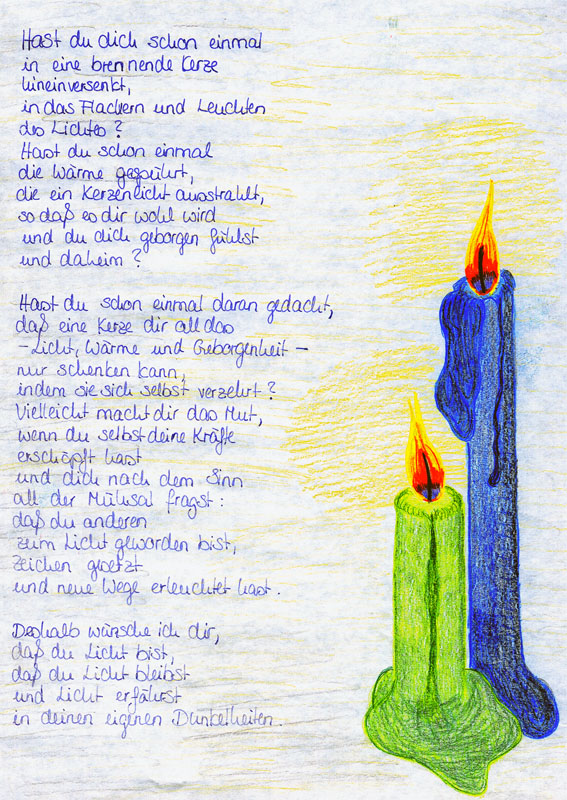 Hast du dich schon einmal
in eine brennende Kerze
hineinversenkt,
in das Flackern und Leuchten
des Lichtes?
Hast du schon einmal
die Wärme gespührt,
die ein Kerzenlicht ausstrahlt,
so daß es dir wohl wird
und du dich geborgen fühlst
und daheim?

Hast du schon einmal daran gedacht,
daß eine Kerze dir all das
- Licht, Wärme und Geborgenheit -
nur schenken kann,
indem sie sich selbst verzehrt?
Vielleicht macht dir das Mut,
wenn du selbst deine Kräfte
erschöpft hast
und dich nach dem Sinn
all der Mühsal fragst:
daß du anderen
zum Licht geworden bist,
Zeichen gesetzt
und neue Wege erleuchtet hast.

Deshalb wünsche ich dir,
daß du Licht bist,
daß du Licht bleibst
und Licht erfährst
in deinen eigenen Dunkelheiten.